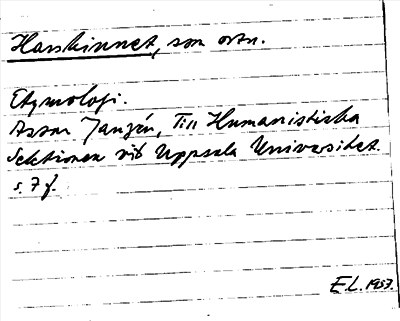 Harskinnet, som ortn.
Etymologi.
Assar Janzén, Till Humanistiska
Sektionen vid Uppsala Universitet.
s. 7 f.
E.L. 1957.